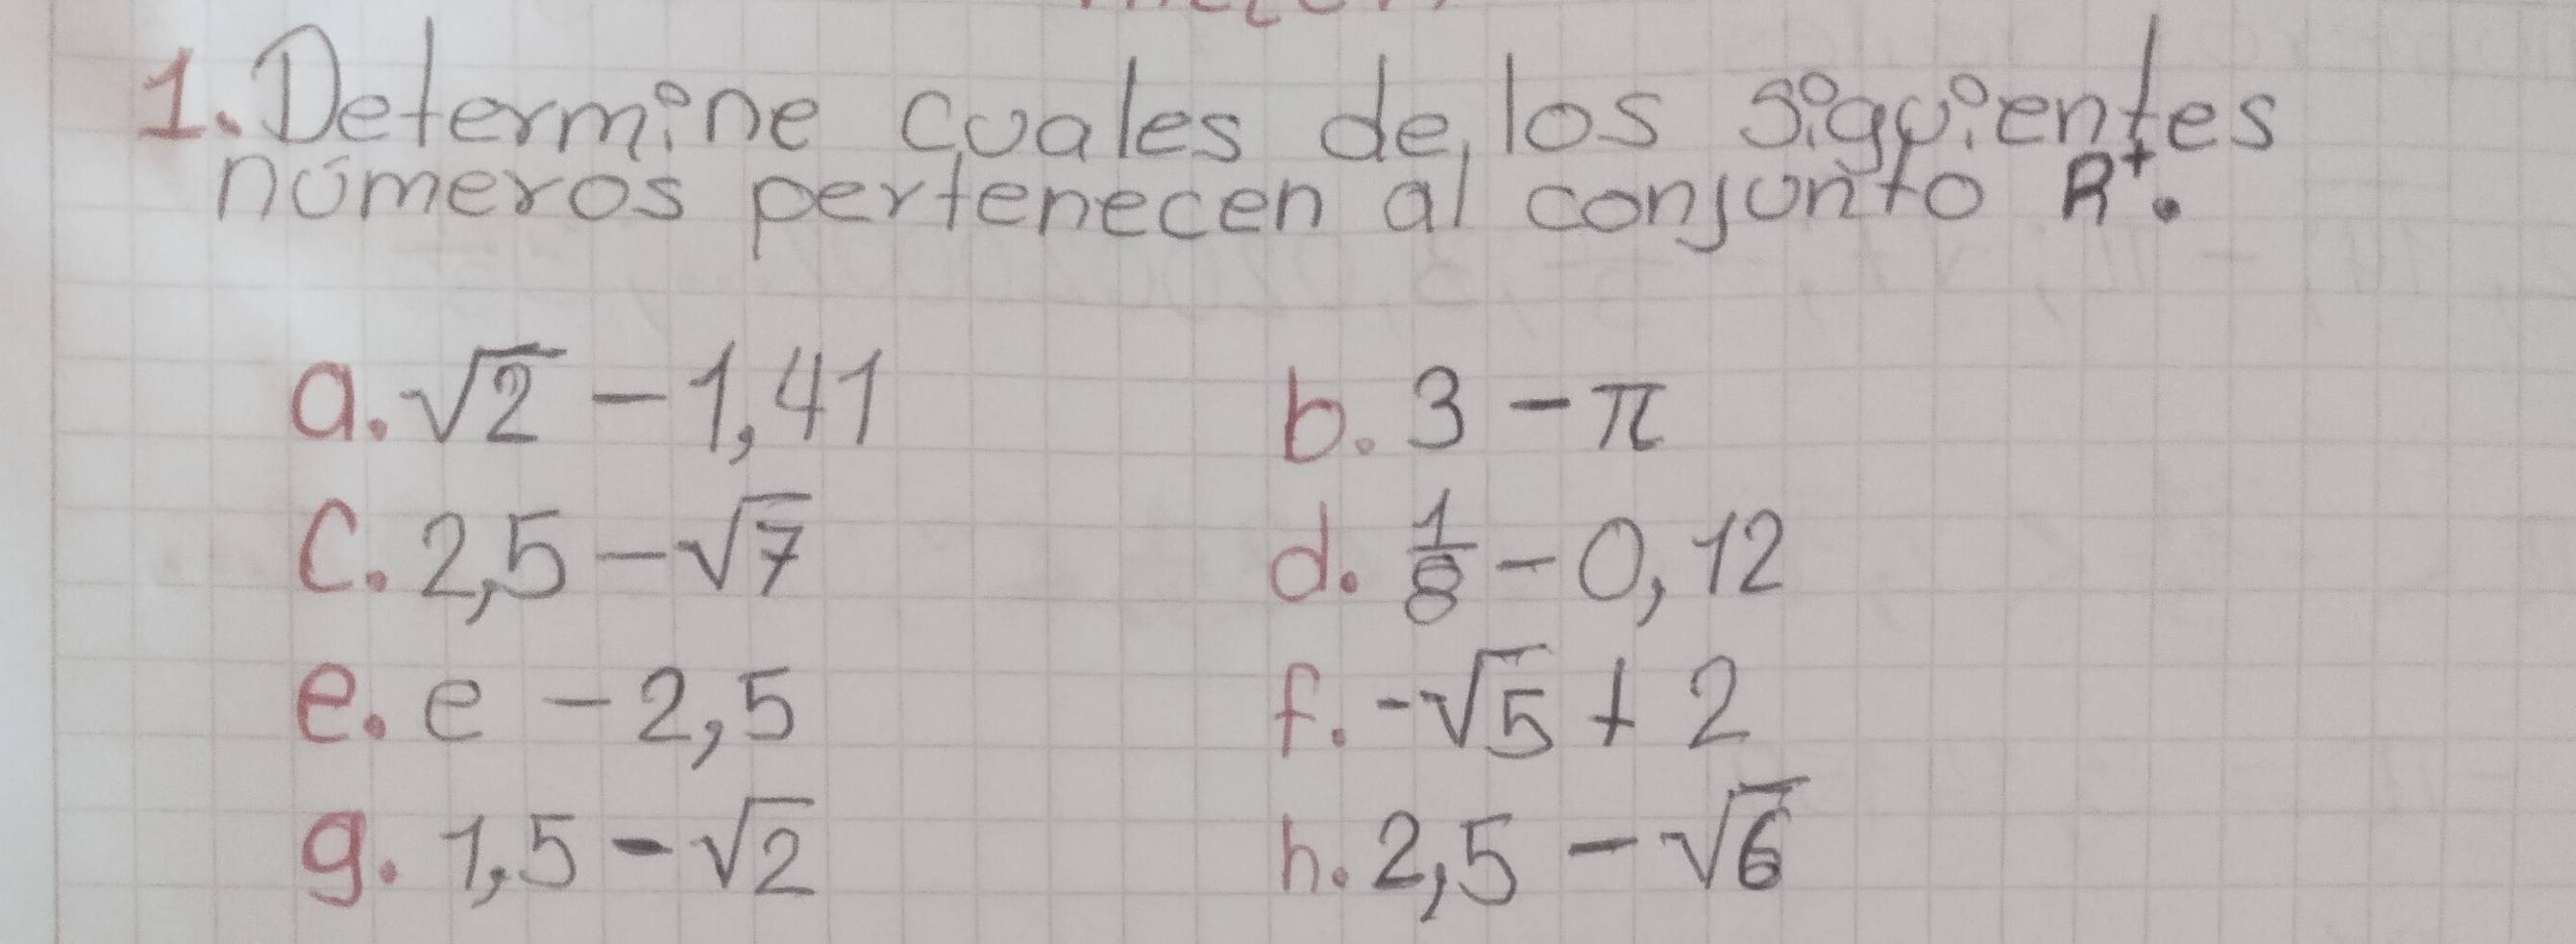 1. Determine cuales de los siguientes
números pertenecen al conjunto R⁺.
a. √2 - 1,41 b. 3 - π
c. 2,5 - √7 d. 1/8 - 0,12
e. e - 2,5 f. -√5 + 2
g. 1,5 - √2 h. 2,5 - √6